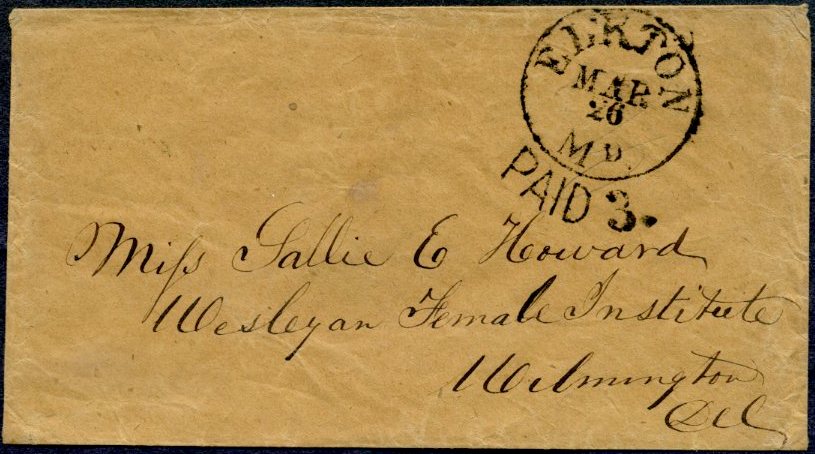 ELKTON
MAR
26
MD.
PAID 3.
Miſs Sallie E Howard
Wesleyan Female Institute
Wilmington
Del